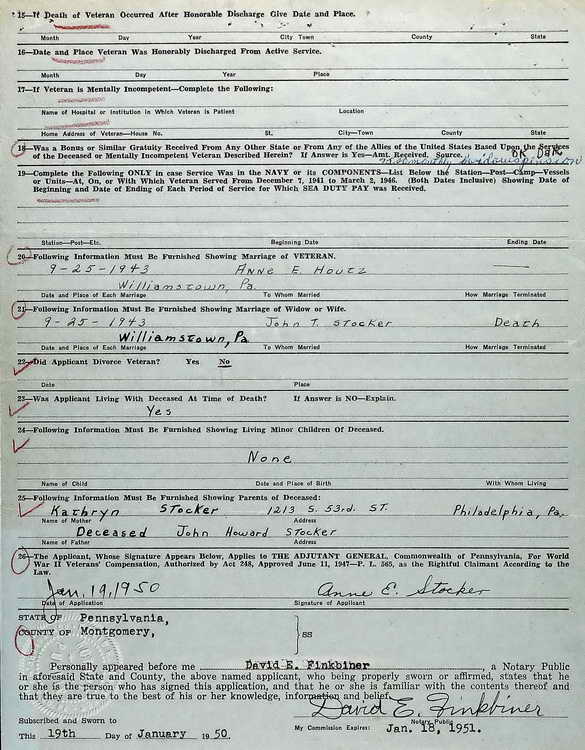 15—If Death of Veteran Occurred After Honorable Discharge Give Date and Place.
Month Day Year City Town County State
16—Date and Place Veteran Was Honorably Discharged From Active Service.
Month Day Year Place
17—If Veteran is Mentally Incompetent—Complete the Following:
Name of Hospital or Institution in Which Veteran is Patient Location
Home Address of Veteran—House No. St. City—Town County State
18—Was a Bonus or Similar Gratuity Received From Any Other State or From Any of the Allies of the United States Based Upon the Services
of the Deceased or Mentally Incompetent Veteran Described Herein? If Answer is Yes—Amt. Received. Source. OR Date
19—Complete the Following ONLY in case Service Was in the NAVY or its COMPONENTS—List Below the Station—Post—Camp—Vessels
or Units—At, On, or With Which Veteran Served From December 7, 1941 to March 2, 1946. (Both Dates Inclusive) Showing Date of
Beginning and Date of Ending of Each Period of Service for Which SEA DUTY PAY was Received.
Station—Post—Etc. Beginning Date Ending Date
20—Following Information Must Be Furnished Showing Marriage of VETERAN.
9-25-1943 Anne E. Houtz —
Williamstown, Pa.
Date and Place of Each Marriage To Whom Married How Marriage Terminated
21—Following Information Must Be Furnished Showing Marriage of Widow or Wife.
9-25-1943 John T. Stocker Death
Williamstown, Pa
Date and Place of Each Marriage To Whom Married How Marriage Terminated
22—Did Applicant Divorce Veteran? Yes No
Date Place
23—Was Applicant Living With Deceased At Time of Death? If Answer is NO—Explain.
Yes
24—Following Information Must Be Furnished Showing Living Minor Children Of Deceased.
None
Name of Child Date and Place of Birth With Whom Living
25—Following Information Must Be Furnished Showing Parents of Deceased:
Kathryn Stocker 1213 S. 53rd. St. Philadelphia, Pa.
Name of Mother Address
Deceased John Howard Stocker
Name of Father Address
26—The Applicant, Whose Signature Appears Below, Applies to THE ADJUTANT GENERAL, Commonwealth of Pennsylvania, For World
War II Veterans' Compensation, Authorized by Act 248, Approved June 11, 1947—P. L. 565, as the Rightful Claimant According to the
Law.
Jan. 19, 1950 Anne E. Stocker
Date of Application Signature of Applicant
STATE OF Pennsylvania,
COUNTY OF Montgomery, } SS
Personally appeared before me David E. Finkbiner, a Notary Public
in aforesaid State and County, the above named applicant, who being properly sworn or affirmed, states that he
or she is the person who has signed this application, and that he or she is familiar with the contents thereof and
that they are true to the best of his or her knowledge, information and belief.
David E. Finkbiner
Notary Public
Subscribed and Sworn to
This 19th Day of January 1950. My Commission Expires: Jan. 18, 1951.